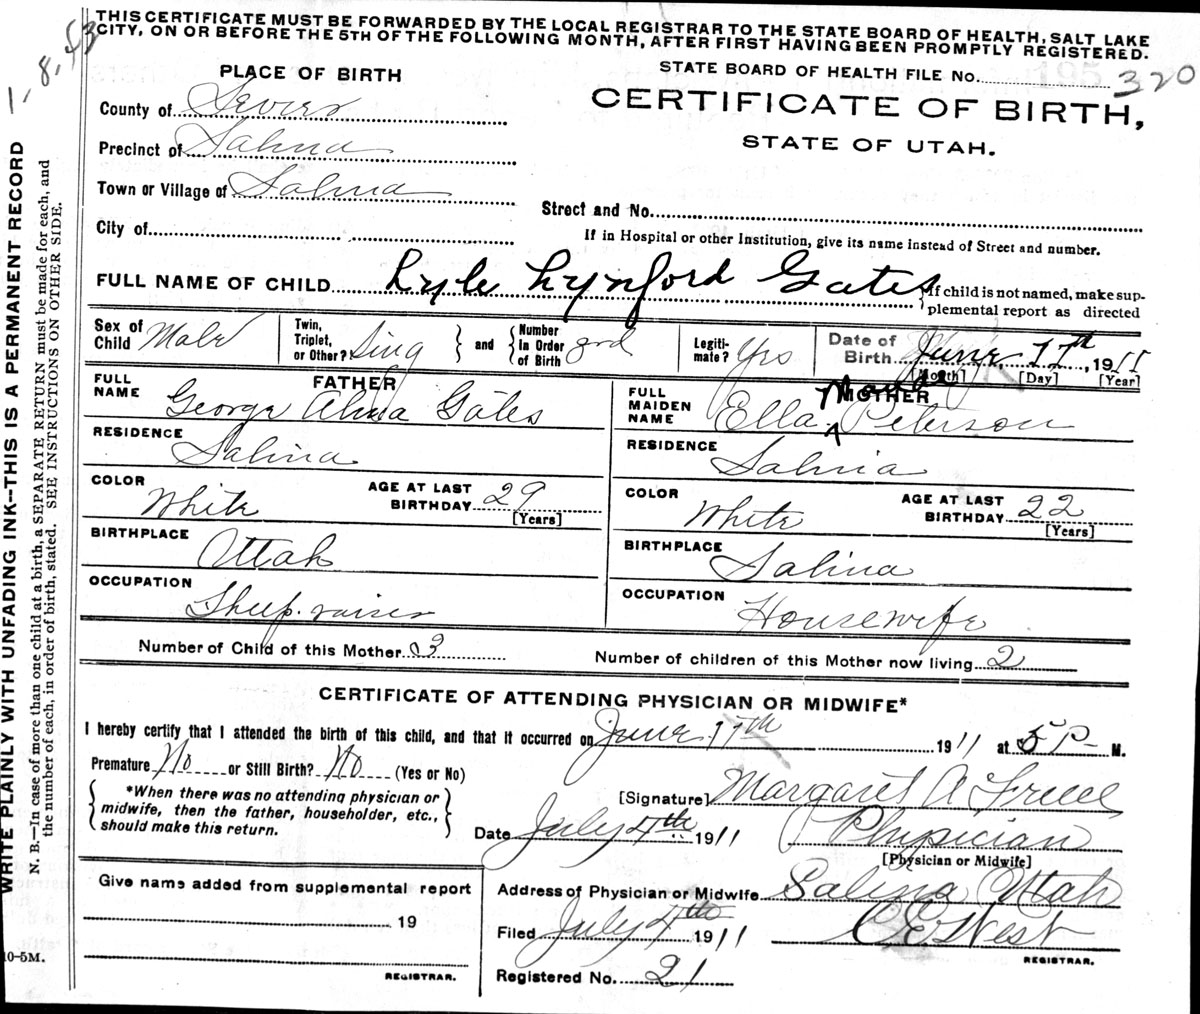 THIS CERTIFICATE MUST BE FORWARDED BY THE LOCAL REGISTRAR TO THE STATE BOARD OF HEALTH, SALT LAKE
CITY, ON OR BEFORE THE 5TH OF THE FOLLOWING MONTH, AFTER FIRST HAVING BEEN PROMPTLY REGISTERED.
PLACE OF BIRTH
STATE BOARD OF HEALTH FILE No. 320
County of Sevier
CERTIFICATE OF BIRTH,
STATE OF UTAH.
Precinct of Salina
Town or Village of Salina
Street and No.
City of
If in Hospital or other Institution, give its name instead of Street and number.
FULL NAME OF CHILD Lyle Lynford Gates
If child is not named, make sup-
plemental report as directed
Sex of Child Male
Twin, Triplet, or Other? Sing and Number In Order of Birth 3rd
Legiti-mate? Yes
Date of Birth June 17th, 1911
[Month] [Day] [Year]
FATHER
FULL NAME George Alma Gates
MOTHER
FULL MAIDEN NAME Ella Peterson
RESIDENCE Salina
RESIDENCE Salina
COLOR White AGE AT LAST BIRTHDAY 29 [Years]
COLOR White AGE AT LAST BIRTHDAY 22 [Years]
BIRTHPLACE Utah
BIRTHPLACE Salina
OCCUPATION Sheep raiser
OCCUPATION Housewife
Number of Child of this Mother 3
Number of children of this Mother now living 2
CERTIFICATE OF ATTENDING PHYSICIAN OR MIDWIFE*
I hereby certify that I attended the birth of this child, and that it occurred on June 17th 1911 at 5 P M.
Premature No or Still Birth? No (Yes or No)
*When there was no attending physician or
midwife, then the father, householder, etc.,
should make this return.
[Signature] Margaret A
Date July 4th 1911 Physician
[Physician or Midwife]
Give name added from supplemental report
19
REGISTRAR.
Address of Physician or Midwife Salina Utah
Filed July 4th 1911 C E West
REGISTRAR.
Registered No. 21
WRITE PLAINLY WITH UNFADING INK--THIS IS A PERMANENT RECORD
N. B.—In case of more than one child at a birth, a SEPARATE RETURN must be made for each, and
the number of each, in order of birth, stated. SEE INSTRUCTIONS ON OTHER SIDE.
10-5M.